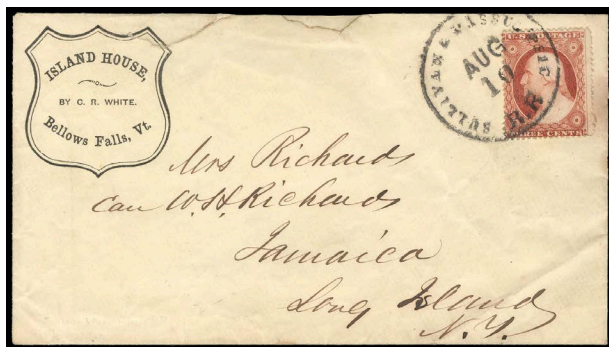 ISLAND HOUSE,
BY C. R. WHITE.
Bellows Falls, Vt.
SULLIVAN &
AUG
10
R.R.
U.S. POSTAGE
CENTS
Mrs Richards
Care W. H. Richards
Jamaica
Long Island
N.Y.